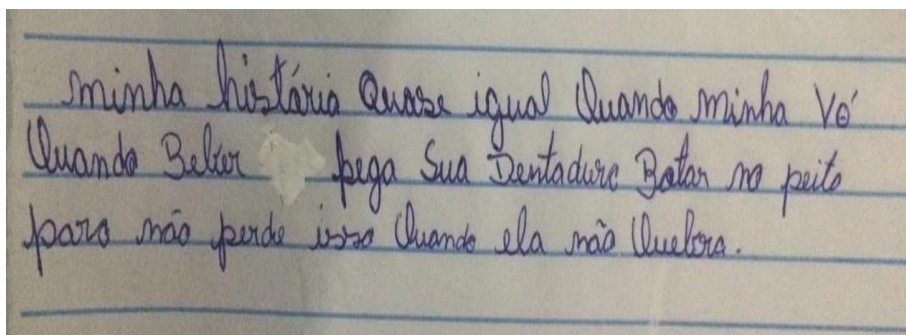 minha história Quase igual Quando minha Vó
Quando Beber pega Sua Dentadura Botar no peito
para não perde isso Quando ela não Quebra.